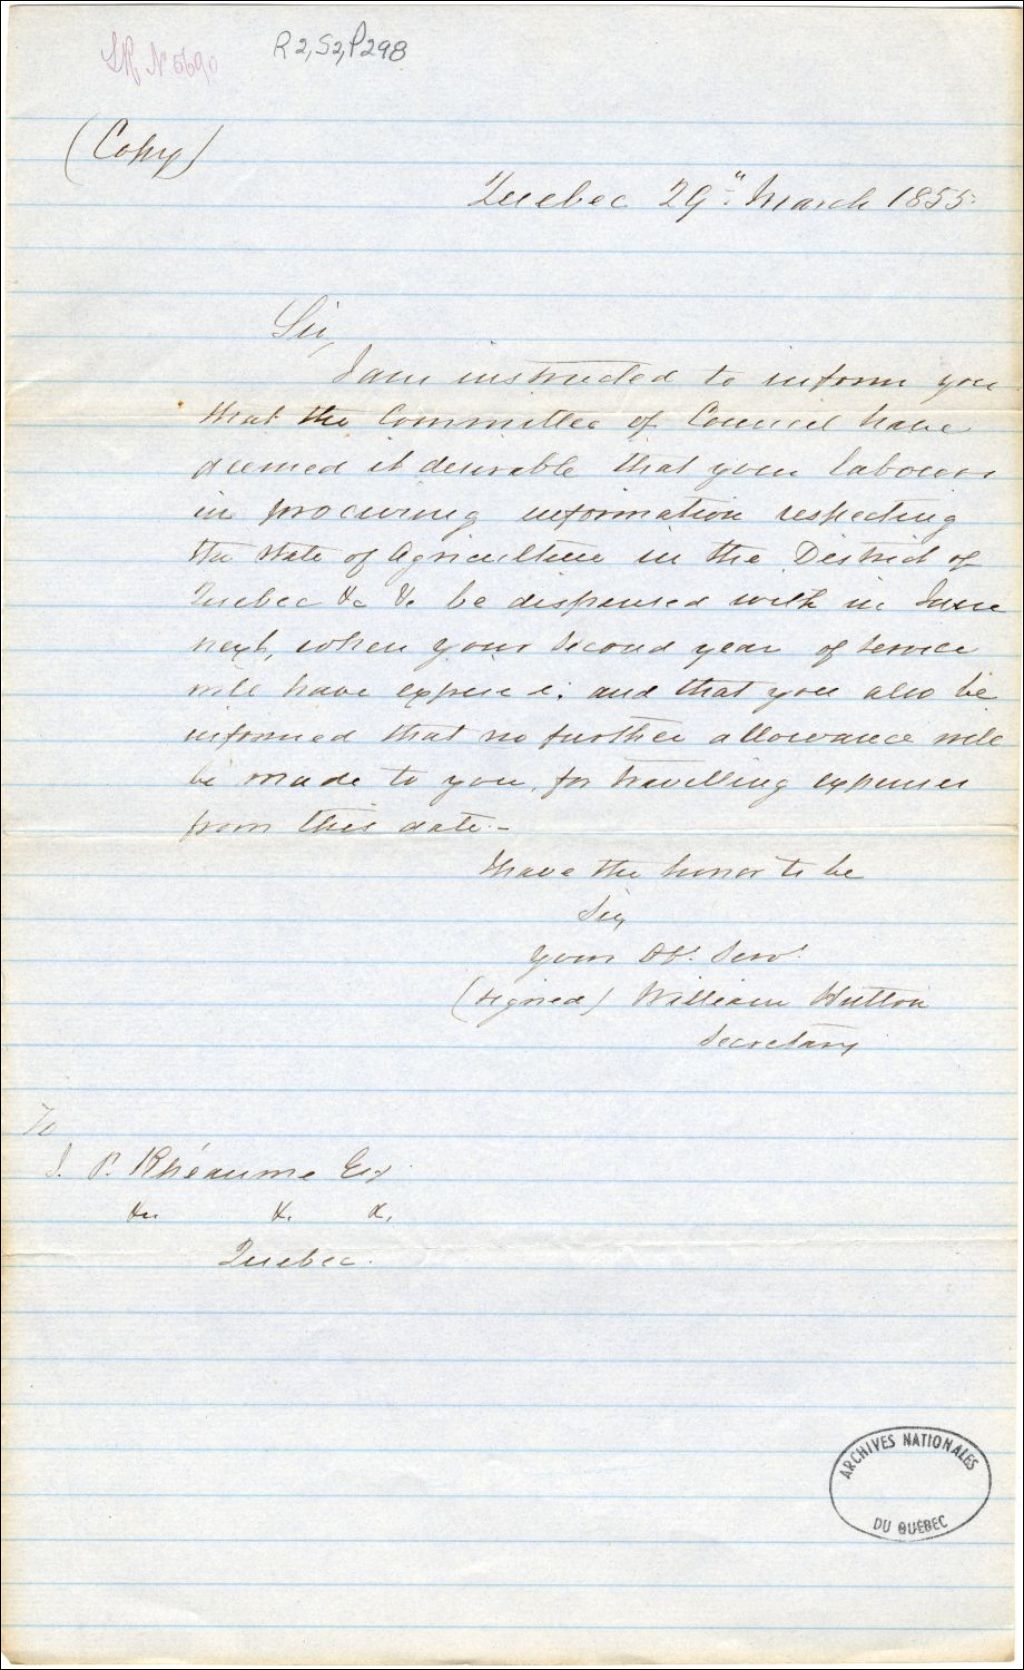 R2,S2,P298
(Copy)
Quebec 29" March 1855.
Sir,
I am instructed to inform you
that the Committee of Council have
deemed it desirable that your labours
in procuring information respecting
the state of Agriculture in the District of
Quebec &c &c be dispensed with in June
next, when your second year of service
will have expired; and that you also be
informed that no further allowance will
be made to you, for travelling expenses
from this date.-
I have the honor to be
Sir,
Your Obt. Servt.
(signed) William Hutton
Secretary
To
J. P. Rhéaume Esq.
&c &c &c,
Quebec.
ARCHIVES NATIONALES
DU QUÉBEC